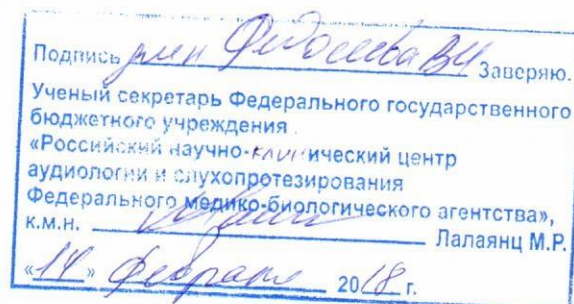 Подпись дмн Федосеева В И Заверяю.
Ученый секретарь Федерального государственного
бюджетного учреждения
«Российский научно-клинический центр
аудиологии и слухопротезирования
Федерального медико-биологического агентства»,
к.м.н. Лалаянц М.Р.
«14» февраля 2018 г.